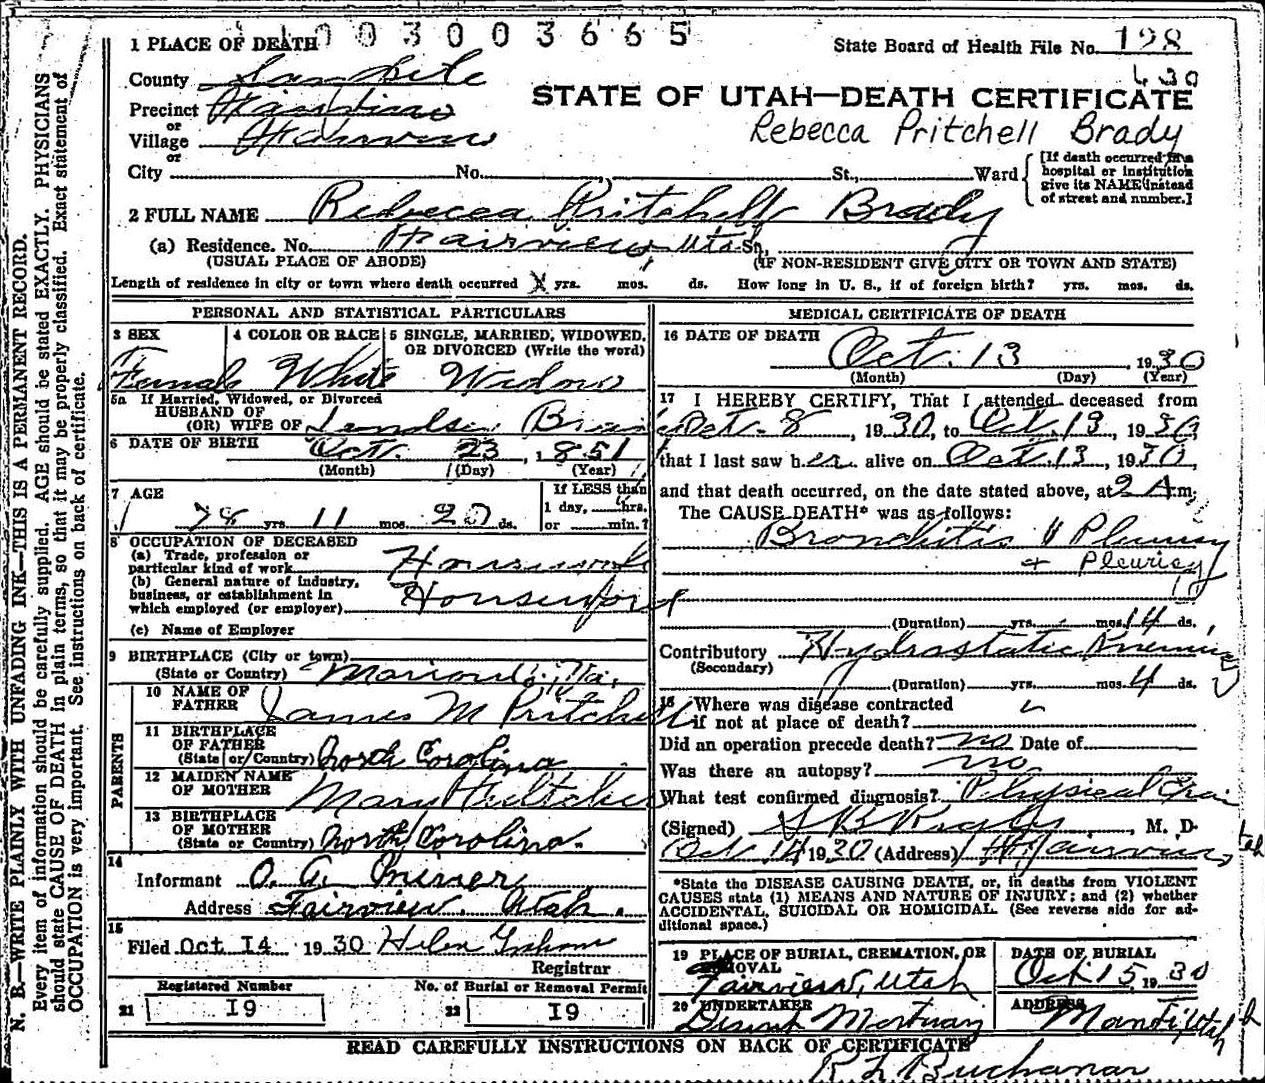 003003665
1 PLACE OF DEATH
State Board of Health File No. 198
430
County Sanpete
STATE OF UTAH—DEATH CERTIFICATE
Precinct Fairview
or
Village Fairview
Rebecca Pritchell Brady
or
City No. St., Ward
[If death occurred in a hospital or institution give its NAME instead of street and number.]
2 FULL NAME Rebecca Pritchell Brady
(a) Residence. No. Fairview, Utah St.
(USUAL PLACE OF ABODE) (IF NON-RESIDENT GIVE CITY OR TOWN AND STATE)
Length of residence in city or town where death occurred X yrs. mos. ds. How long in U. S., if of foreign birth? yrs. mos. ds.
PERSONAL AND STATISTICAL PARTICULARS
3 SEX 4 COLOR OR RACE 5 SINGLE, MARRIED, WIDOWED,
OR DIVORCED (Write the word)
Female White Widow
5a If Married, Widowed, or Divorced
HUSBAND OF
(OR) WIFE OF
6 DATE OF BIRTH Oct. 23, 1851
(Month) (Day) (Year)
7 AGE If LESS than
1 day, hrs.
78 yrs 11 mos. 20 ds. or min.?
8 OCCUPATION OF DECEASED
(a) Trade, profession or
particular kind of work Housework
(b) General nature of industry,
business, or establishment in
which employed (or employer)
(c) Name of Employer
9 BIRTHPLACE (City or town)
(State or Country) Marion Co.
PARENTS
10 NAME OF
FATHER James M Pritchell
11 BIRTHPLACE
OF FATHER
(State or Country) North Carolina
12 MAIDEN NAME
OF MOTHER Mary
13 BIRTHPLACE
OF MOTHER
(State or Country) North Carolina.
14
Informant O. A.
Address Fairview Utah.
15
Filed Oct 14 1930 Helen Graham
Registrar
Registered Number No. of Burial or Removal Permit
21 19 22 19
MEDICAL CERTIFICATE OF DEATH
16 DATE OF DEATH
Oct. 13, 1930
(Month) (Day) (Year)
17 I HEREBY CERTIFY, That I attended deceased from
Oct. 8, 1930, to Oct. 13, 1930,
that I last saw her alive on Oct. 13, 1930,
and that death occurred, on the date stated above, at 2 A m.
The CAUSE DEATH* was as follows:
Bronchitis
+ Pleurisy
(Duration) yrs. mos. 14 ds.
Contributory Hydrostatic
(Secondary)
(Duration) yrs. mos. 4 ds.
18 Where was disease contracted
if not at place of death?
Did an operation precede death? no Date of
Was there an autopsy? no
What test confirmed diagnosis? Physical
(Signed) , M. D.
Oct 14 1930 (Address) Fairview
*State the DISEASE CAUSING DEATH, or, in deaths from VIOLENT
CAUSES state (1) MEANS AND NATURE OF INJURY; and (2) whether
ACCIDENTAL, SUICIDAL OR HOMICIDAL. (See reverse side for ad-
ditional space.)
19 PLACE OF BURIAL, CREMATION, OR
REMOVAL
Fairview, Utah
DATE OF BURIAL
Oct. 15, 1930
20 UNDERTAKER
Mortuary
ADDRESS
Manti, Utah
READ CAREFULLY INSTRUCTIONS ON BACK OF CERTIFICATE
R L Buchanan
N. B.—WRITE PLAINLY WITH UNFADING INK—THIS IS A PERMANENT RECORD.
Every item of information should be carefully supplied. AGE should be stated EXACTLY. PHYSICIANS
should state CAUSE OF DEATH in plain terms, so that it may be properly classified. Exact statement of
OCCUPATION is very important. See instructions on back of certificate.